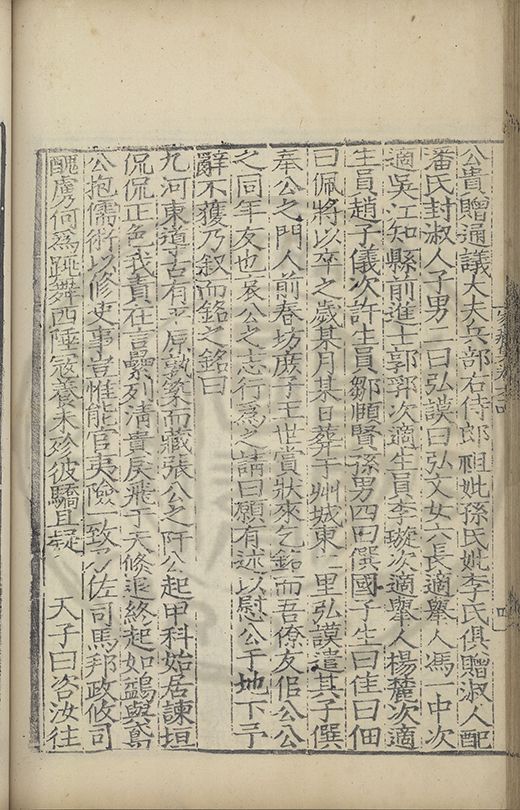 公貴贈通議大夫兵部右侍郎祖妣孫氏妣李氏俱贈淑人配
潘氏封淑人子男二曰弘謨曰弘文女六長適舉人馮一中次
適吳江知縣前進士郭郛次適生員李璇次適舉人楊麓次適
生員趙子儀次許生員鄒順賢孫男四曰僎國子生曰佳曰佃
曰佩將以卒之歲某月某日葬于州城東一里弘謨遣其子僎
奉公之門人前春坊庶子王世賞狀來乞銘而吾僚友侶公公
之同年友也哀公之志行為之請曰願有述以慰公于地下予
辭不獲乃叙而銘之銘曰
九河東道古有平原孰築而藏張公之阡公起甲科始居諫垣
侃侃正色我責在言壘列清貴戾飛于天倐退終起如鷁與鳶
公抱儒術以修吏事豈惟能官夷險一致乃佐司馬邦政攸司
醜虜乃何為跳舞西陲寇養未殄彼驕且 天子曰咨汝往